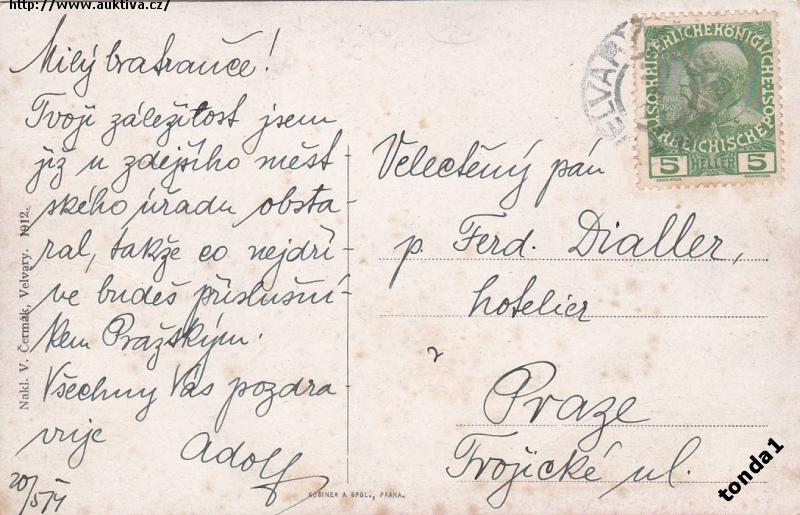 http://www.auktiva.cz/
Milý bratranče!
Tvoji záležitost jsem
již u zdejšího měst-
ského úřadu obsta-
ral, takže co nejdří-
ve budeš příslušní-
kem Pražským.
Všechny Vás pozdra
vuje Adolf
20/5 14
Nakl. V. Čermák, Velvary. 1912.
KOSINER A SPOL., PRAHA.
VELVAR
KAISERLICHE KÖNIGLICHE
ÖSTERREICHISCHE POST
5 HELLER 5
Velectěný pán
p. Ferd. Dialler,
hotelier
v
Praze
Trojické ul.
tonda1